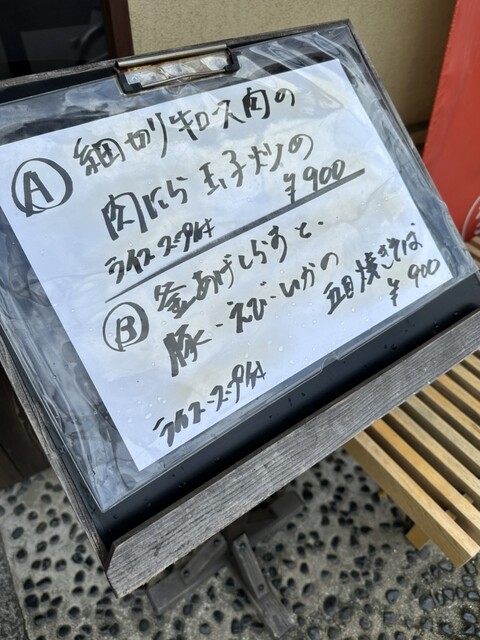 Ⓐ 細切り牛ロース肉の
肉にら玉子炒の
¥900
ライス・スープ付
Ⓑ 釜あげしらすと、
豚・えび・いかの
五目焼きそば
¥900
ライス・スープ付